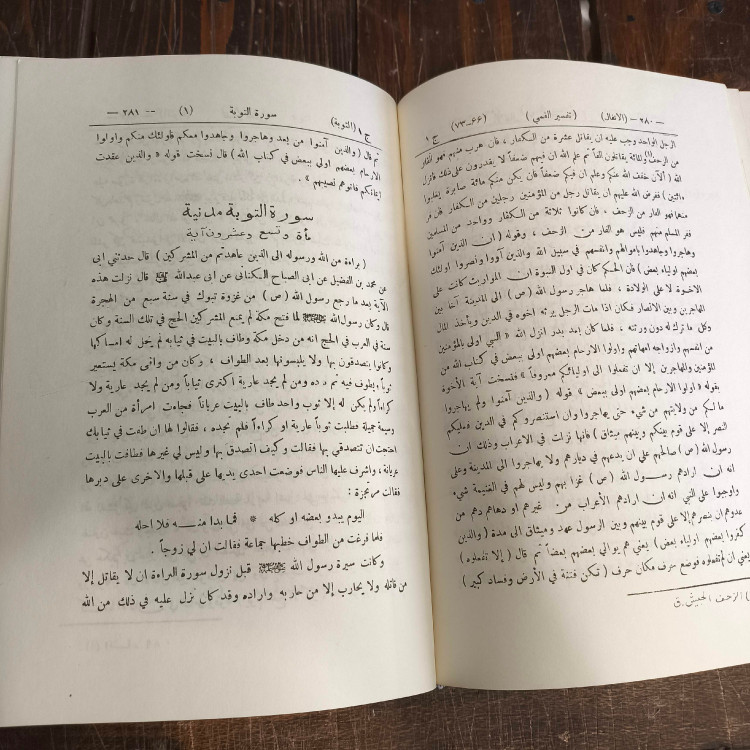 — ٢٨٠ — (الانفال) (تفسير القمي) (٦٦-٧٣) ج ١
الرجل الواحد وجب عليه ان يقاتل عشرة من الكفار ، فان هرب منهم فهو الفار
من الزحف(١) والمائة يقاتلون الفاً ثم علم الله ان فيهم ضعفاً لا يقدرون على ذلك فانزل
( الآن خفف الله عنكم وعلم ان فيكم ضعفاً فان يكن منكم مائة صابرة يغلبوا
مائتين ) ففرض الله عليهم ان يقاتل رجل من المؤمنين رجلين من الكفار فان فر
منهما فهو الفار من الزحف ، فان كانوا ثلاثة من الكفار وواحد من المسلمين
ففر المسلم منهم فليس هو الفار من الزحف ، وقوله ( ان الذين آمنوا
وهاجروا وجاهدوا باموالهم وانفسهم في سبيل الله والذين آووا ونصروا اولئك
بعضهم اولياء بعض ) فان الحكم كان في اول النبوة ان المواريث كانت على
الاخوة لا على الولادة ، فلما هاجر رسول الله ( ص ) الى المدينة آخا بين
المهاجرين وبين الانصار فكان اذا مات الرجل يرثه اخوه في الدين ويأخذ المال
وكل ما ترك له دون ورثته ، فلما كان بعد بدر انزل الله « النبي اولى بالمؤمنين
من انفسهم وازواجه امهاتهم واولوا الارحام بعضهم اولى ببعض في كتاب الله من
المؤمنين والمهاجرين إلا ان تفعلوا الى اوليائكم معروفاً » فنسخت آية الأخوة
بقوله « اولوا الارحام بعضهم اولى ببعض » قوله ( والذين آمنوا ولم يهاجروا
ما لكم من ولايتهم من شيء حتى يهاجروا وان استنصروكم في الدين فعليكم
النصر إلا على قوم بينكم وبينهم ميثاق ) فانها نزلت في الاعراب وذلك ان
رسول الله ( ص ) صالحهم على ان يدعهم في ديارهم ولا يهاجروا الى المدينة وعلى
انه ان ارادهم رسول الله ( ص ) غزا بهم وليس لهم في الغنيمة شيء
واوجبوا على النبي انه ان ارادهم الأعراب من غيرهم او دهاهم دهم من
عدوهم ان ينصرهم إلا على قوم بينهم وبين الرسول عهد وميثاق الى مدة ( والذين
كفروا بعضهم اولياء بعض ) يعني هم يوالي بعضهم بعضاً ثم قال ( إلا تفعلوه )
يعني ان لم تفعلوه فوضع حرف مكان حرف ( تكن فتنة في الأرض وفساد كبير )
) الزحف الجيش. ق
ج ١ (التوبة) سورة التوبة (١) — ٢٨١ —
ثم قال ( والذين آمنوا من بعد وهاجروا وجاهدوا معكم فاولئك منكم واولوا
الارحام بعضهم اولى ببعض في كتاب الله ) قال نسخت قوله « والذين عقدت
ايمانكم فاتوهم نصيبهم » .
سورة التوبة مدنية
مأة وتسع وعشرون آية
( براءة من الله ورسوله الى الذين عاهدتم من المشركين ) قال حدثني ابى
عن محمد بن الفضيل عن ابى الصباح الكنانى عن ابى عبدالله ﷺ قال نزلت هذه
الآية بعد ما رجع رسول الله ( ص ) من غزوة تبوك في سنة سبع من الهجرة
قال وكان رسول الله ﷺ لما فتح مكة لم يمنع المشركين الحج في تلك السنة وكان
سنة في العرب في الحج انه من دخل مكة وطاف بالبيت في ثيابه لم يحل له امساكها
وكانوا يتصدقون بها ولا يلبسونها بعد الطواف ، وكان من وافى مكة يستعير
ثوباً ويطوف فيه ثم رده ومن لم يجد عارية اكترى ثياباً ومن لم يجد عارية ولا
كراءاً ولم يكن له إلا ثوب واحد طاف بالبيت عرياناً فجاءت امرأة من العرب
وسيمة جميلة فطلبت ثوباً عارية او كراءاً فلم تجده ، فقالوا لها ان طفت في ثيابك
احتجت ان تتصدقي بها فقالت وكيف اتصدق بها وليس لي غيرها فطافت بالبيت
عريانة ، واشرف عليها الناس فوضعت احدى يديها على قبلها والاخرى على دبرها
فقالت مرتجزة :
اليوم يبدو بعضه او كله * فما بدا منه فلا احله
فلما فرغت من الطواف خطبها جماعة فقالت ان لي زوجاً .
وكانت سيرة رسول الله ﷺ قبل نزول سورة البراءة ان لا يقاتل إلا
من قاتله ولا يحارب إلا من حاربه واراده وقد كان نزل عليه في ذلك من الله